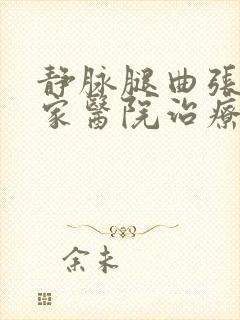 静脉腿曲張
家醫院治療
余未